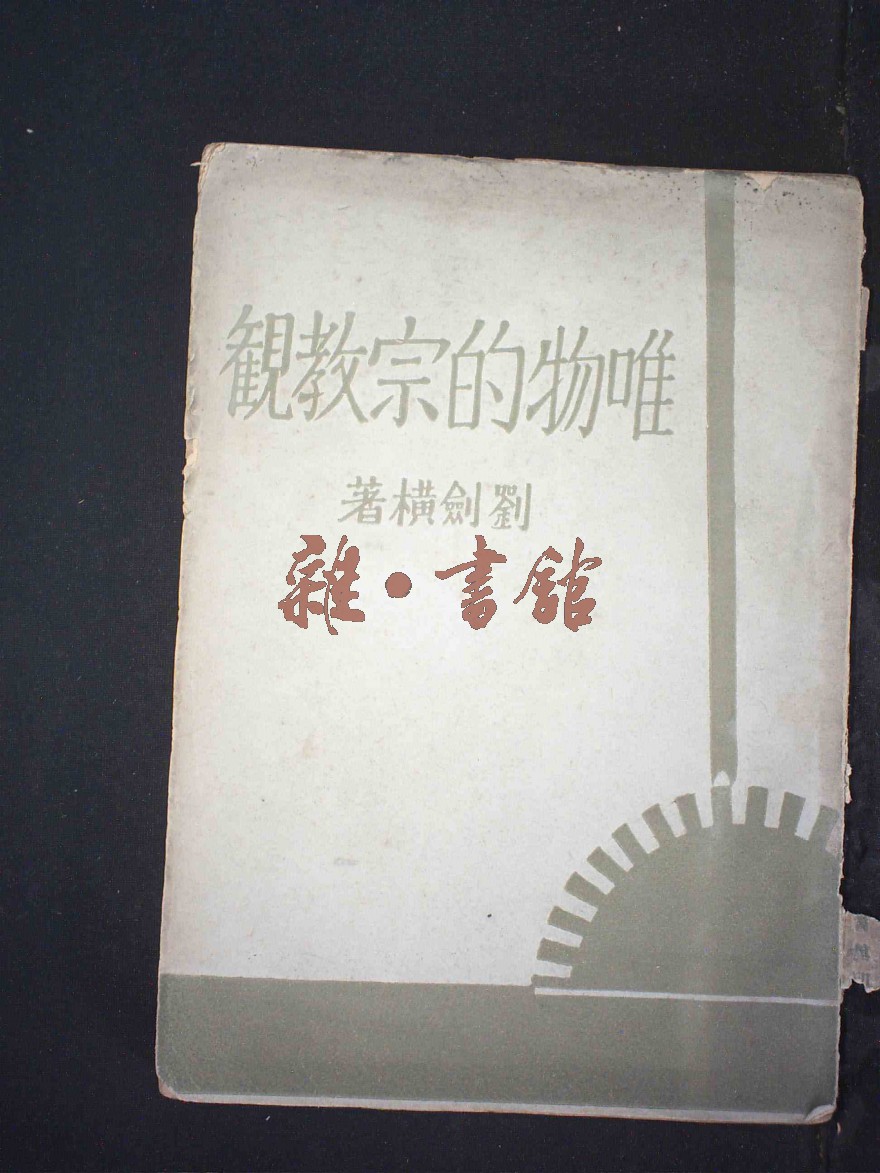 唯物的宗教観
劉劍橫著
雜·書館